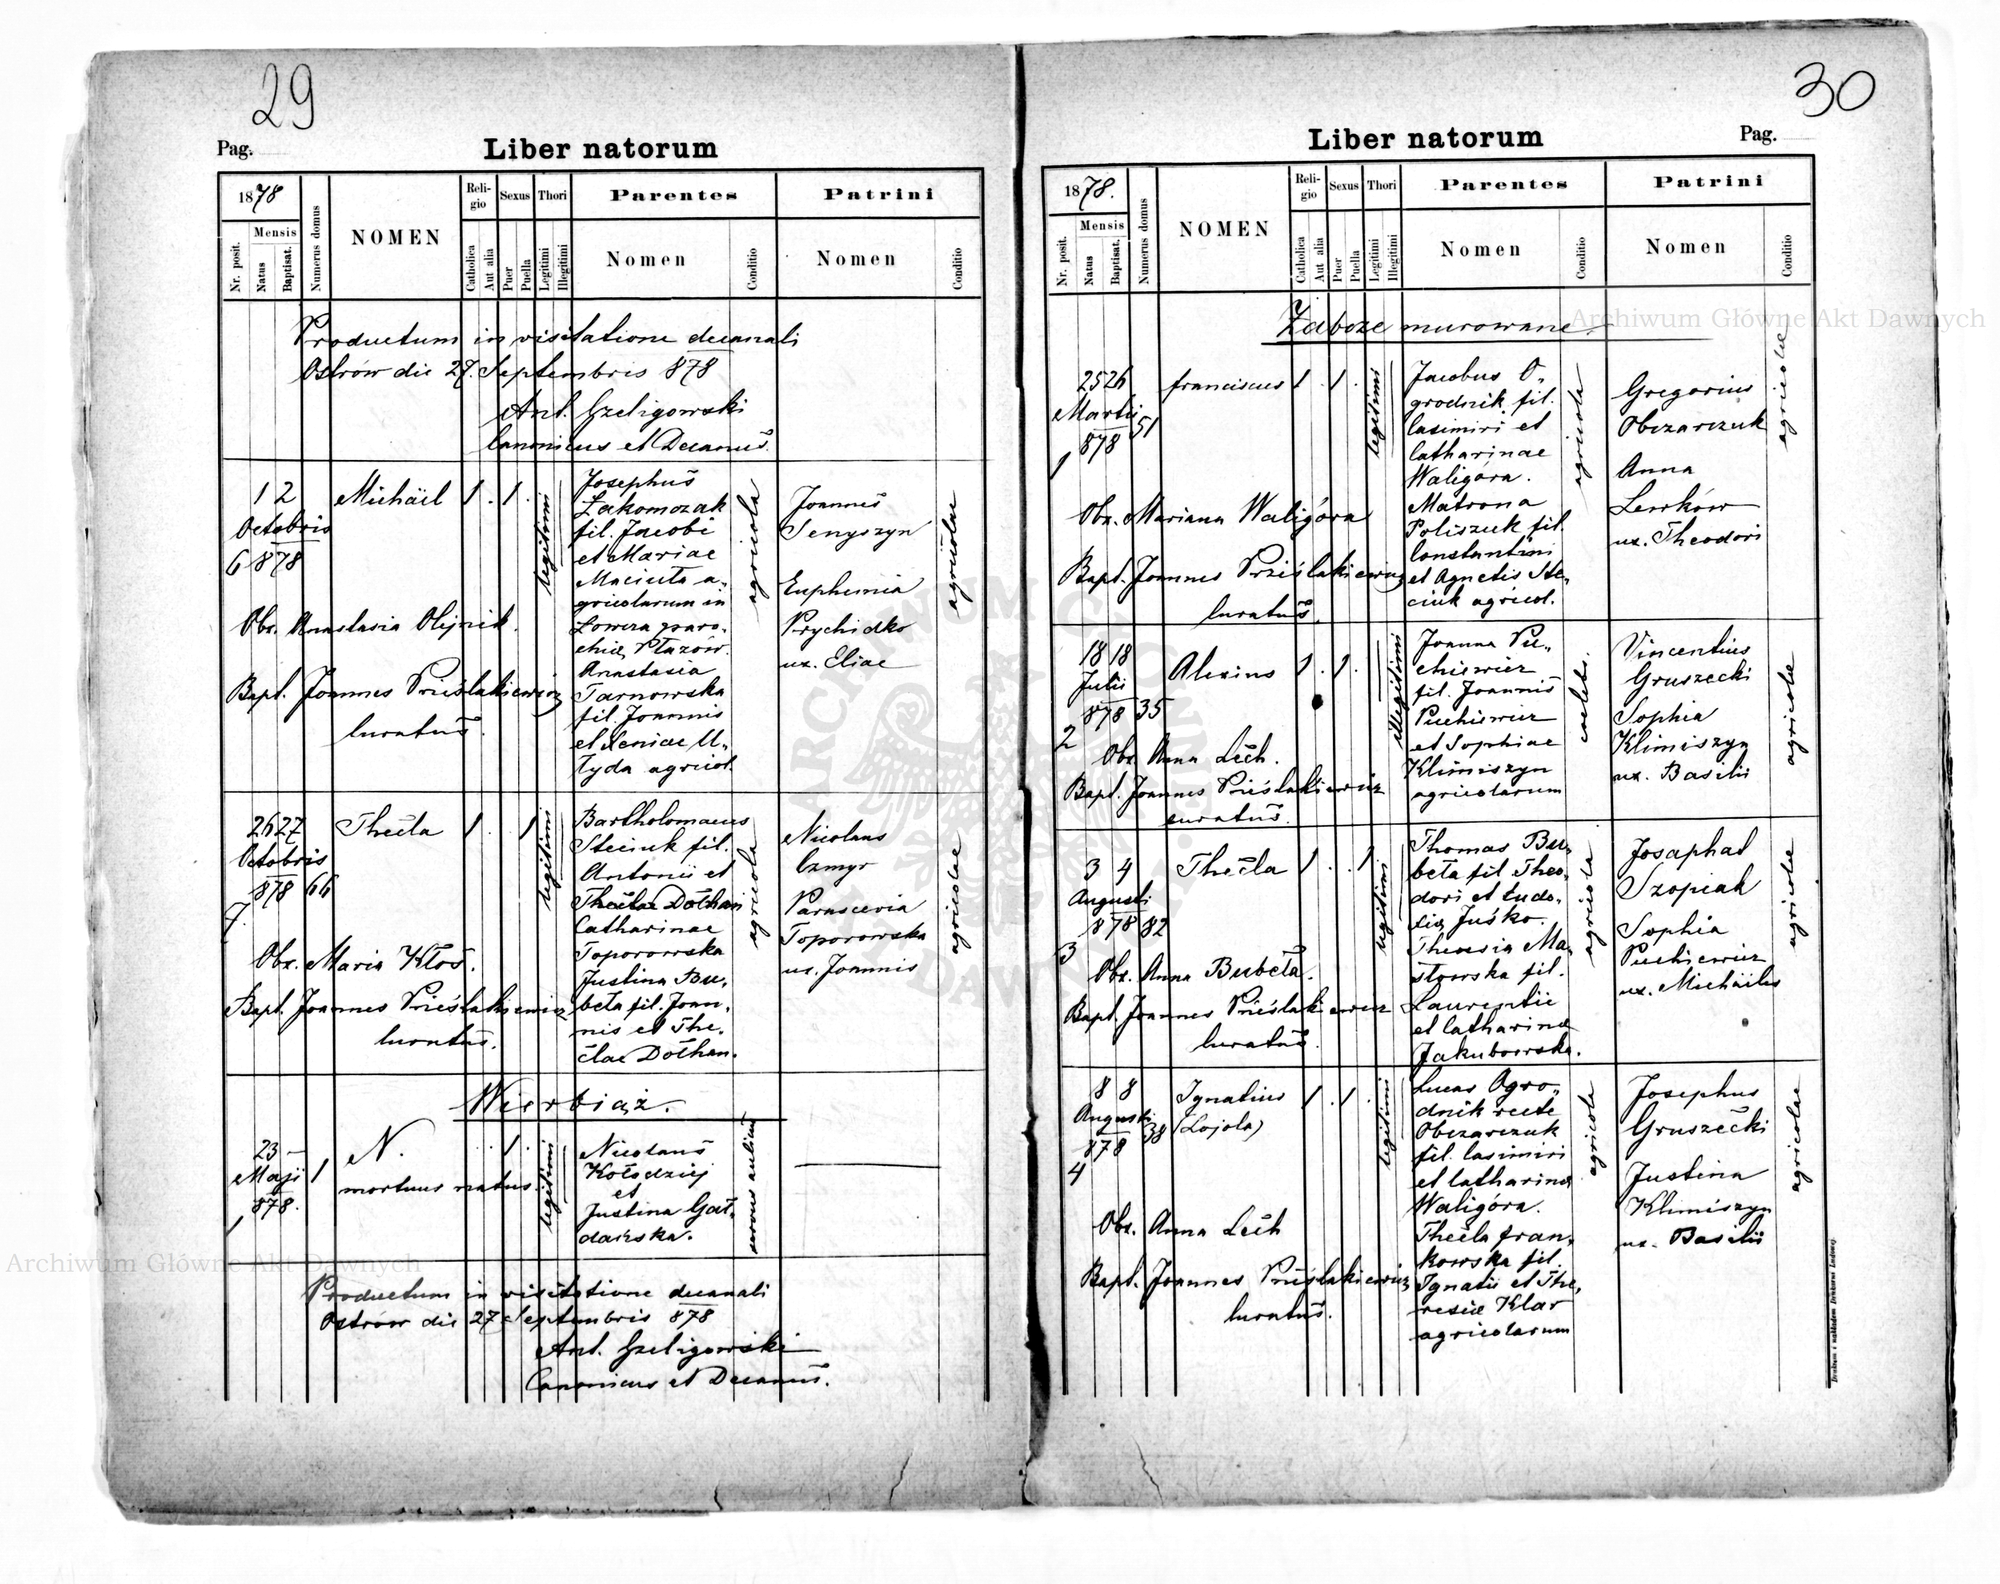 29
Pag.
Liber natorum
1878
Mensis
Nr. posit.
Natus
Baptisat.
Numerus domus
NOMEN
Reli-
gio
Catholica
Aut alia
Sexus
Puer
Puella
Thori
Legitimi
Illegitimi
Parentes
Nomen
Conditio
Patrini
Nomen
Conditio
Productum in visitatione decanali
Ostrów die 27. Septembris 878
Ant. Szeligowski
Canonicus et Decanus.
1 2
Octobris
6 878
Michäil
1 . 1 .
legitimi
Josephus
Zakomozak
fil. Jacobi
et Mariae
Maciuta a-
gricolarum in
Łowcza paro-
chie Płazów.
Anastasia
Tarnowska
fil. Joannis
et Xeniae U-
łyda agricol.
agricola
Joannes
Senyszyn
Euphemia
Prychidko
ux. Eliae
agricolae
Obs. Anastasia Olijnik.
Bapt. Joannes Prieślakiewicz
Curatus.
26 27
Octobris
878 66
7
Thecla
1 . 1
legitimi
Bartholomaeus
Steciuk fil.
Antonii et
Theclae Dołhan
Catharinae
Toporowska
Justina Bu-
beła fil. Joan-
nis et The-
clae Dołhan.
agricola
Nicolaus
Czmyr
Parascevia
Toporowska
ux. Joannis
agricolae
Obs. Maria Kłos.
Bapt. Joannes Prieślakiewicz
Curatus.
Wierbiąż.
23 –
Maji
878.
1
1
N.
mortuus natus
. 1 .
legitimi
Nicolaus
Kołodziej
et
Justina Gał-
dańska.
servus aulicus
Productum in visitatione decanali
Ostrów die 27 Septembris 878
Ant. Szeligowski
Canonicus et Decanus.
30
Liber natorum
Pag.
1878.
Mensis
Nr. posit.
Natus
Baptisat.
Numerus domus
NOMEN
Reli-
gio
Catholica
Aut alia
Sexus
Puer
Puella
Thori
Legitimi
Illegitimi
Parentes
Nomen
Conditio
Patrini
Nomen
Conditio
Zaboże murowane.
25 26
Martii
878
51
1
franciscus
1 . 1 .
legitimi
Jacobus O-
grodnik fil.
Casimiri et
Catharinae
Waligóra.
Matrona
Poliszuk fil.
Constantini
et Agnetis Ste-
ciuk agricol.
agricola
Gregorius
Obczarczuk
Anna
Lewków
ux. Theodori
agricolae
Obs. Mariana Waligóra
Bapt. Joannes Prieślakiewicz
Curatus.
18 18
Julii
878 35
2
Alexius
1 . 1 .
illegitimi
Joanna Pu-
chiewicz
fil. Joannis
Puchiewicz
et Sophiae
Klimiszyn
agricolarum
Vincentius
Gruszecki
Sophia
Klimiszyn
ux. Basilii
agricolae
Obs. Anna Lech.
Bapt. Joannes Prieślakiewicz
curatus.
3 4
Augusti
878 82
3
Thecla
1 . . 1
legitimi
Thomas Bu-
beła fil Theo-
dori et Eudo-
xia Juśko.
Theresia Ma-
słowska fil.
Laurentii
et Catharinae
Jakubowska.
agricola
Josaphat
Szopiak
Sophia
Puchiewicz
ux. Michäilis
agricolae
Obs. Anna Bubeła.
Bapt. Joannes Prieślakiewicz
Curatus.
8 8
Augusti
878
38
4
Ignatius
(Lojola)
1 . 1 .
legitimi
Lucas Ogro-
dnik recte
Obczarczuk
fil. Casimiri
et Catharinae
Waligóra.
Thecla fran-
kowska fil.
Ignatii et The-
resiae Klar
agricolarum
agricola
Josephus
Gruszecki
Justina
Klimiszyn
ux. Basilii
agricolae
Obs. Anna Lech
Bapt. Joannes Prieślakiewicz
Curatus.
Archiwum Główne Akt Dawnych
Archiwum Główne Akt Dawnych